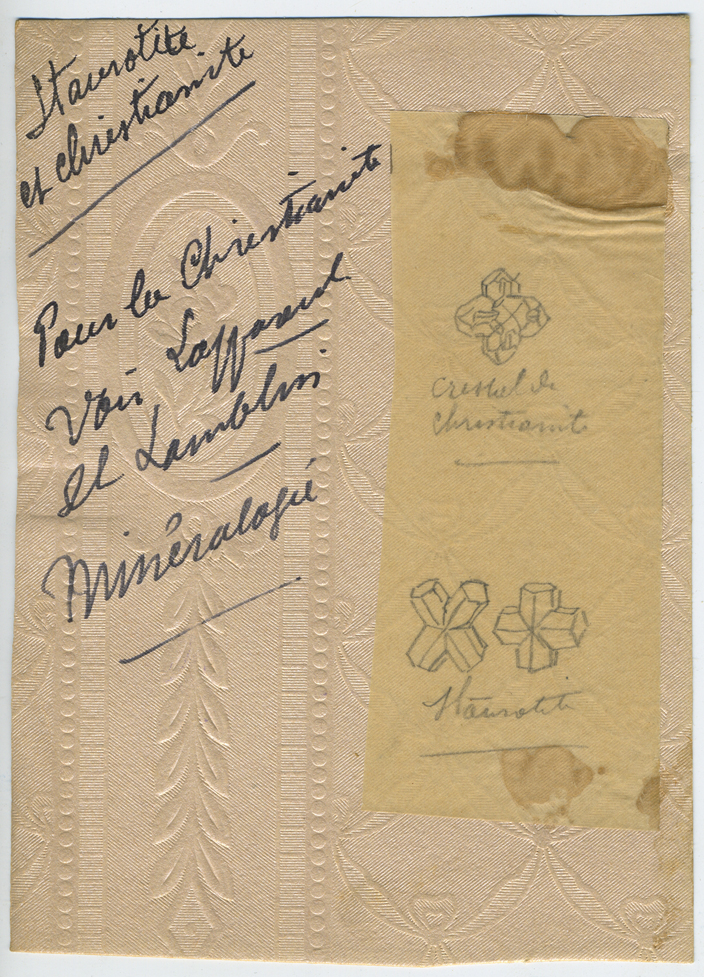 Staurotite
et christianite
Pour la Christianite
Voir Lapparent
et Lamblin
Minéralogie
cristal de
christianite
Staurotite